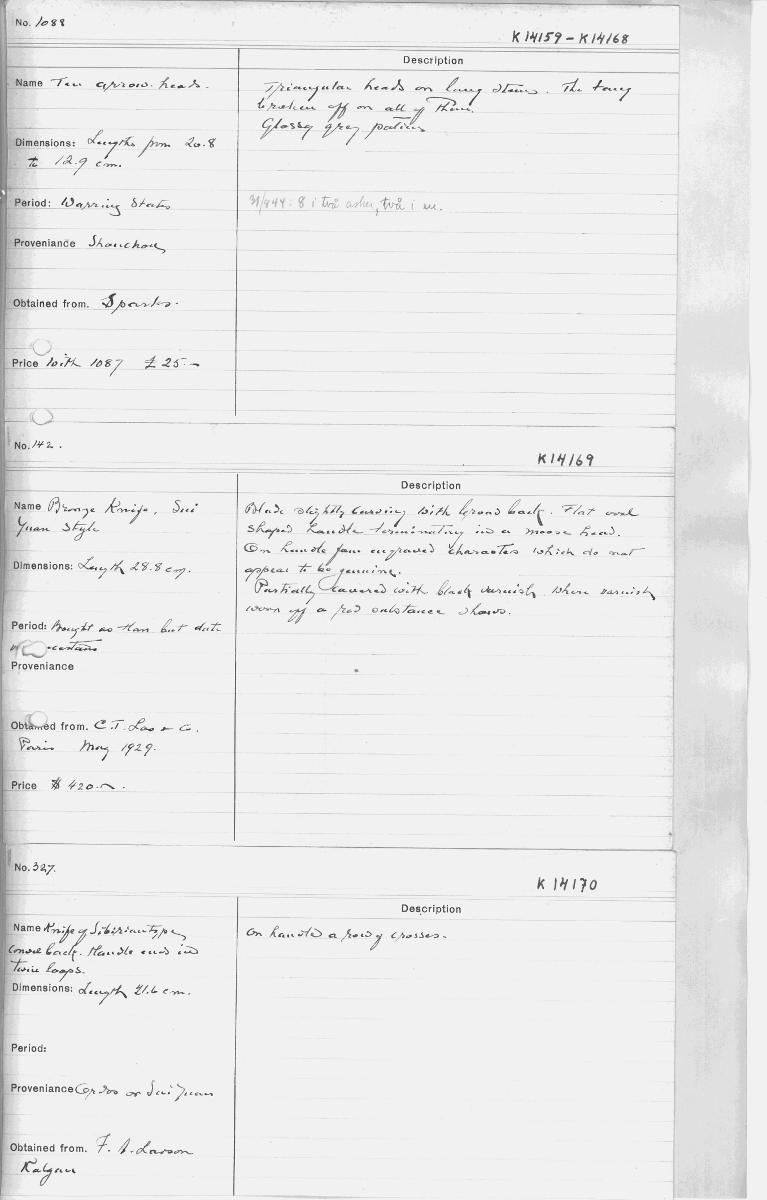 No. 1088
K14159 – K14168
Description
Name Ten arrow-heads.
Triangular heads on long stems. The tang
broken off on all of them.
Glossy grey patina
Dimensions: Lengths from 20.8
to 12.9 cm.
Period: Warring States
8 i två askar, två i en.
Proveniance Shouchou
Obtained from. Sparks.
Price With 1087 £ 25.–
No. 142.
K14169
Description
Name Bronze Knife, Sui
Yuan Style
Blade slightly curving with broad back. Flat oval
shaped handle terminating in a moose head.
On handle four engraved characters which do not
appear to be genuine.
Partially covered with black varnish. Where varnish
worn off a red substance shows.
Dimensions: Length 28.8 cm.
Period: Bought as Han but date
Proveniance
Obtained from. C.T. Loo & Co.
Paris May 1929.
Price $ 420.–.
No. 327.
K 14170
Description
Name Knife of Sibirian type,
Convex back. Handle ends in
twin loops.
On handle a row of crosses.
Dimensions: Length 21.6 cm.
Period:
Proveniance Ordos or Sui Yuan
Obtained from. F. A. Larson
Kalgan